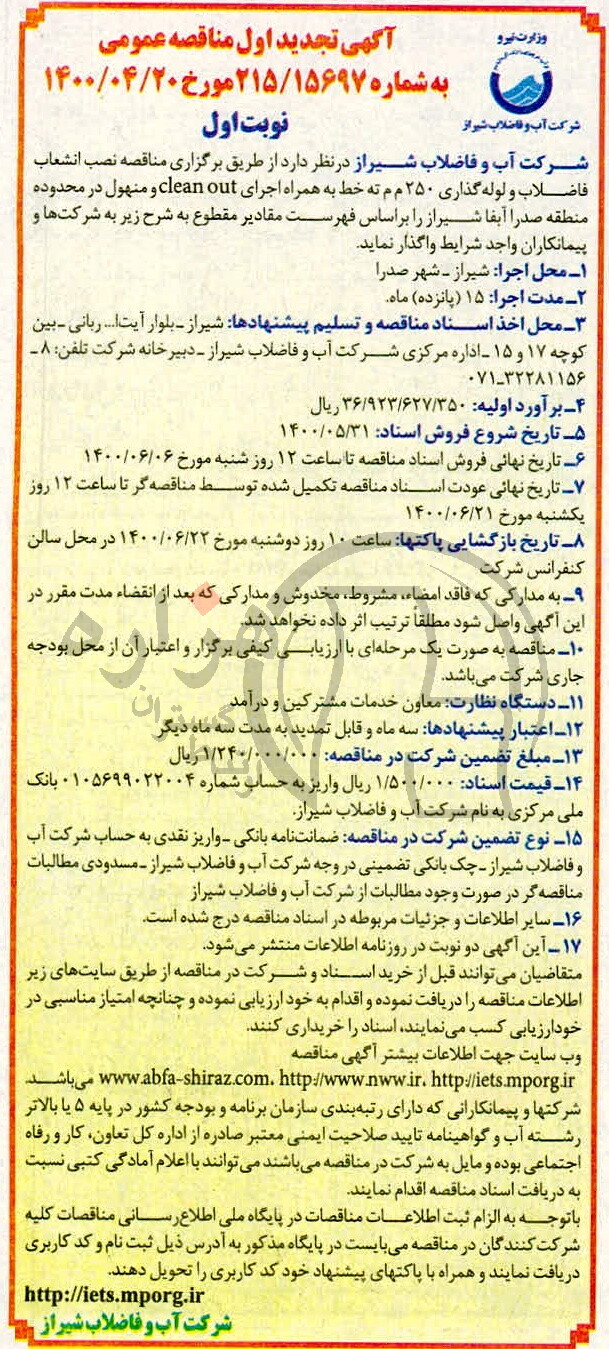 وزارت نیرو
شرکت آب و فاضلاب شیراز
آگهی تجدید اول مناقصه عمومی
به شماره ۲۱۵/۱۵۶۹۷ مورخ ۱۴۰۰/۰۴/۲۰
نوبت اول
شرکت آب و فاضلاب شیراز درنظر دارد از طریق برگزاری مناقصه نصب انشعاب
فاضلاب و لوله‌گذاری ۲۵۰ م م ته خط به همراه اجرای clean out و منهول در محدوده
منطقه صدرا آبفا شیراز را براساس فهرست مقادیر مقطوع به شرح زیر به شرکت‌ها و
پیمانکاران واجد شرایط واگذار نماید.
۱ـ محل اجرا: شیراز ـ شهر صدرا
۲ـ مدت اجرا: ۱۵ (پانزده) ماه.
۳ـ محل اخذ اسناد مناقصه و تسلیم پیشنهادها: شیراز ـ بلوار آیت‌ا... ربانی ـ بین
کوچه ۱۷ و ۱۵ ـ اداره مرکزی شرکت آب و فاضلاب شیراز ـ دبیرخانه شرکت تلفن: ۸ ـ
۰۷۱ـ۳۲۲۸۱۱۵۶
۴ـ برآورد اولیه: ۳۶/۹۲۳/۶۲۷/۳۵۰ ریال
۵ـ تاریخ شروع فروش اسناد: ۱۴۰۰/۰۵/۳۱
۶ـ تاریخ نهائی فروش اسناد مناقصه تا ساعت ۱۲ روز شنبه مورخ ۱۴۰۰/۰۶/۰۶
۷ـ تاریخ نهائی عودت اسناد مناقصه تکمیل شده توسط مناقصه‌گر تا ساعت ۱۲ روز
یکشنبه مورخ ۱۴۰۰/۰۶/۲۱
۸ـ تاریخ بازگشایی پاکتها: ساعت ۱۰ روز دوشنبه مورخ ۱۴۰۰/۰۶/۲۲ در محل سالن
کنفرانس شرکت
۹ـ به مدارکی که فاقد امضاء، مشروط، مخدوش و مدارکی که بعد از انقضاء مدت مقرر در
این آگهی واصل شود مطلقاً ترتیب اثر داده نخواهد شد.
۱۰ـ مناقصه به صورت یک مرحله‌ای با ارزیابی کیفی برگزار و اعتبار آن از محل بودجه
جاری شرکت می‌باشد.
۱۱ـ دستگاه نظارت: معاون خدمات مشترکین و درآمد
۱۲ـ اعتبار پیشنهادها: سه ماه و قابل تمدید به مدت سه ماه دیگر
۱۳ـ مبلغ تضمین شرکت در مناقصه: ۱/۲۴۰/۰۰۰/۰۰۰ ریال
۱۴ـ قیمت اسناد: ۱/۵۰۰/۰۰۰ ریال واریز به حساب شماره ۰۱۰۵۶۹۹۰۲۲۰۰۴ بانک
ملی مرکزی به نام شرکت آب و فاضلاب شیراز.
۱۵ـ نوع تضمین شرکت در مناقصه: ضمانت‌نامه بانکی ـ واریز نقدی به حساب شرکت آب
و فاضلاب شیراز ـ چک بانکی تضمینی در وجه شرکت آب و فاضلاب شیراز ـ مسدودی مطالبات
مناقصه‌گر در صورت وجود مطالبات از شرکت آب و فاضلاب شیراز
۱۶ـ سایر اطلاعات و جزئیات مربوطه در اسناد مناقصه درج شده است.
۱۷ ـ آین آگهی دو نوبت در روزنامه اطلاعات منتشر می‌شود.
متقاضیان می‌توانند قبل از خرید اسناد و شرکت در مناقصه از طریق سایت‌های زیر
اطلاعات مناقصه را دریافت نموده و اقدام به خود ارزیابی نموده و چنانچه امتیاز مناسبی در
خودارزیابی کسب می‌نمایند، اسناد را خریداری کنند.
وب سایت جهت اطلاعات بیشتر آگهی مناقصه
www.abfa-shiraz.com، http://www.nww.ir، http://iets.mporg.ir می‌باشد.
شرکتها و پیمانکارانی که دارای رتبه‌بندی سازمان برنامه و بودجه کشور در پایه ۵ یا بالاتر
رشته آب و گواهینامه تایید صلاحیت ایمنی معتبر صادره از اداره کل تعاون، کار و رفاه
اجتماعی بوده و مایل به شرکت در مناقصه می‌باشند می‌توانند با اعلام آمادگی کتبی نسبت
به دریافت اسناد مناقصه اقدام نمایند.
باتوجه به الزام ثبت اطلاعات مناقصات در پایگاه ملی اطلاع‌رسانی مناقصات کلیه
شرکت‌کنندگان در مناقصه می‌بایست در پایگاه مذکور به آدرس ذیل ثبت نام و کد کاربری
دریافت نمایند و همراه با پاکتهای پیشنهاد خود کد کاربری را تحویل دهند.
http://iets.mporg.ir
شرکت آب و فاضلاب شیراز